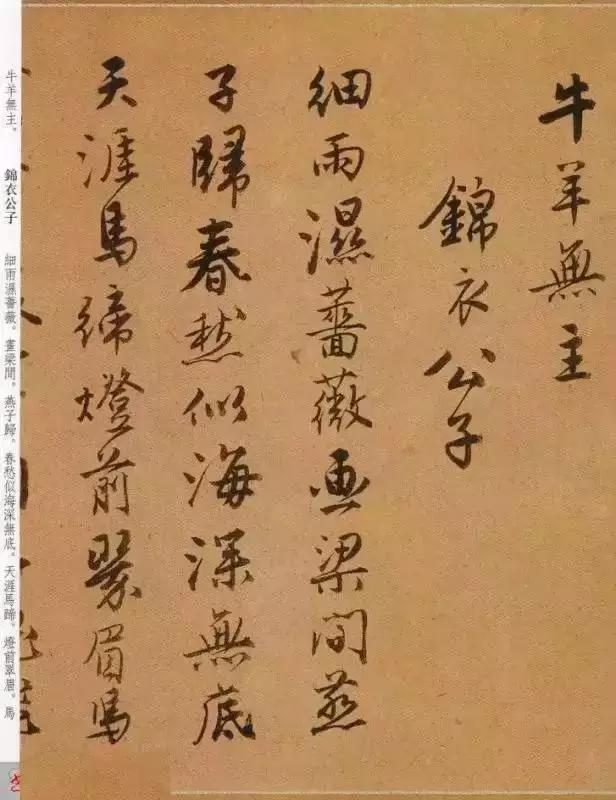 牛羊無主
錦衣公子
細雨濕薔薇画梁間燕
子歸春愁似海深無底
天涯馬蹄燈前翠眉馬
牛羊無主。 錦衣公子 細雨濕薔薇。畫梁間。燕子歸。春愁似海深無底。天涯馬蹄。燈前翠眉。馬